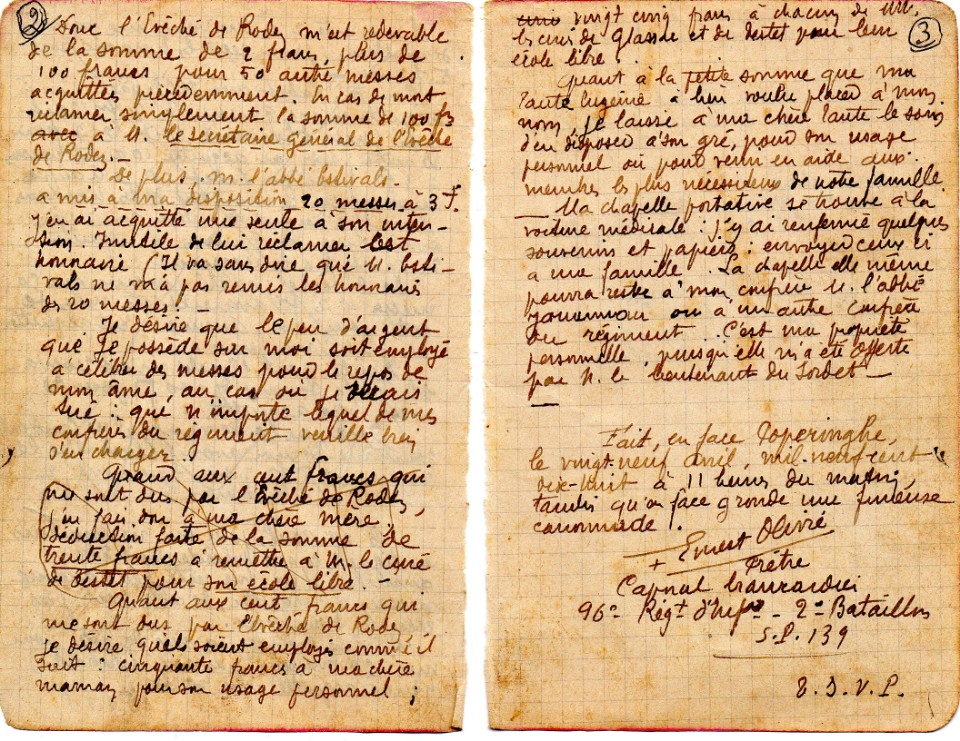 2
Donc l'Evêché de Rodez m'est redevable
de la somme de 2 francs, plus de
100 francs pour 50 autre messes
acquittées précédemment. En cas de mort
réclamer simplement la somme de 100 frs
avec à M. le secrétaire général de l'Evêché
de Rodez. -
De plus, M. l'abbé Estivals
a mis à ma disposition 20 messes à 3 f.
J'en ai acquitté une seule à son inten-
sion. Inutile de lui réclamer
honoraire (Il va sans dire que M. Esti-
vals ne m'a pas remis les honoraires
des 20 messes. -
Je désire que le peu d'argent
que je possède sur moi soit employé
à célébrer des messes pour le repos de
mon âme, au cas où je serais
tué : que n'importe lequel de mes
confrères du régiment veuille bien
s'en charger.
Quand aux cent francs qui
me sont dus par l'Evêché de Rodez,
j'en fais don à ma chère mère,
déduction faite de la somme de
trente francs à remettre à M. le curé
de pour son école libre. -
Quant aux cent francs qui
me sont dus par l'Evêché de Rodez
je désire qu'ils soient employés comme il
suit : cinquante francs à ma chère
maman pour son usage personnel ;
3
vingt cinq francs à chacun de MM.
les curés de et de pour leur
école libre.
Quant à la petite somme que ma
tante Eugénie a bien voulu placer à mon
nom, je laisse à ma chère tante le soin
d'en disposer à son gré, pour son usage
personnel ou pour venir en aide aux
membres les plus nécessiteux de notre famille.
Ma chapelle portative se trouve à la
voiture médicale : j'y ai renfermé quelques
souvenirs et papiers : envoyer ceux ci
à ma famille. La chapelle elle même
pourra rester à mon confrère M. l'abbé
ou à un autre confrère
du régiment. C'est ma propriété
personnelle, puisqu'elle m'a été offerte
par M. le lieutenant du
Fait, en face Poperinghe,
le vingt-neuf avril, mil neuf cent
dix-huit à 11 heures du matin,
tandis qu'en face gronde une furieuse
canonnade.
+ Ernest Olivié
Prêtre
Caporal brancardier
96e Régt d'Infie - 2e Bataillon
S.P. 139
T.S.V.P.